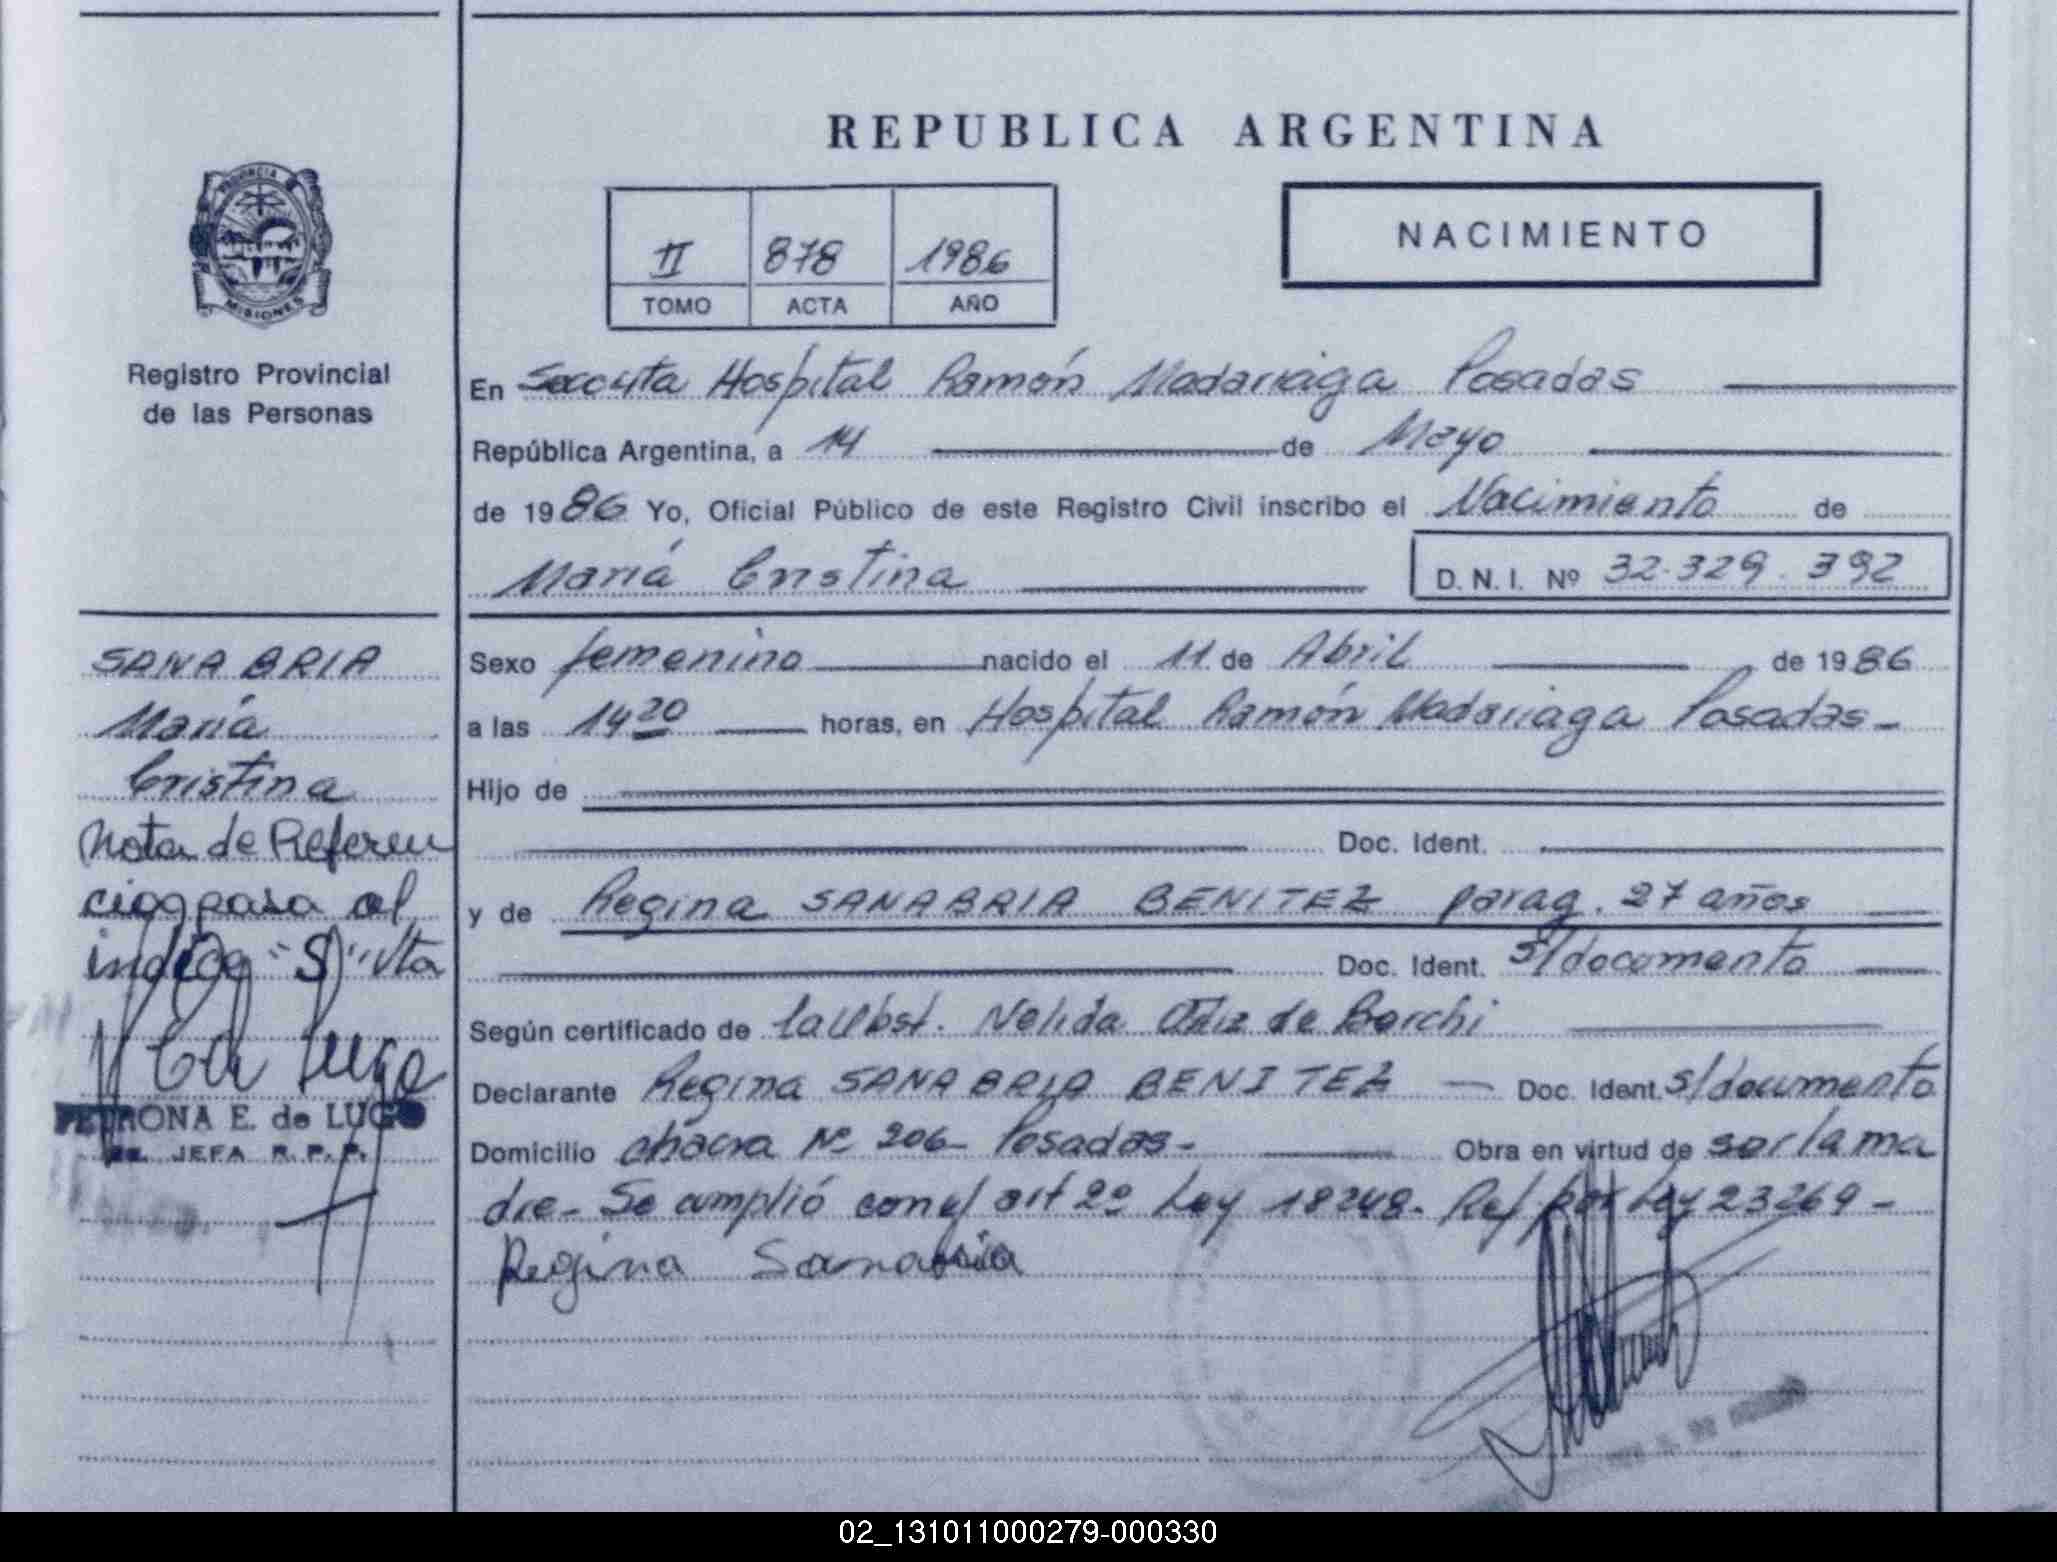 REPUBLICA ARGENTINA
PROVINCIA DE
MISIONES
Registro Provincial
de las Personas
II 878 1986
TOMO ACTA AÑO
NACIMIENTO
En Seccita Hospital Ramón Madariaga Posadas
República Argentina, a 14 de Mayo
de 1986 Yo, Oficial Público de este Registro Civil inscribo el Nacimiento de
María Cristina D. N. I. Nº 32.329.392
Sexo femenino nacido el 11 de Abril de 1986
a las 14 20 horas, en Hospital Ramón Madariaga Posadas-
Hijo de
Doc. Ident.
y de Regina SANABRIA BENITEZ parag. 27 años
Doc. Ident. s/documento
Según certificado de la Obst. Nelida Ortiz de Borchi
Declarante Regina SANABRIA BENITEZ — Doc. Ident. s/documento
Domicilio chacra Nº 206- Posadas- Obra en virtud de ser la ma
dre- Se cumplió con el art 2º Ley 18248. Ref por Ley 23269-
Regina Sanabria
SANABRIA
María
Cristina
Nota de Referen
cia pasa al
indice "S" Vta
PETRONA E. de LUGO
JEFA R. P. P.
02_131011000279-000330